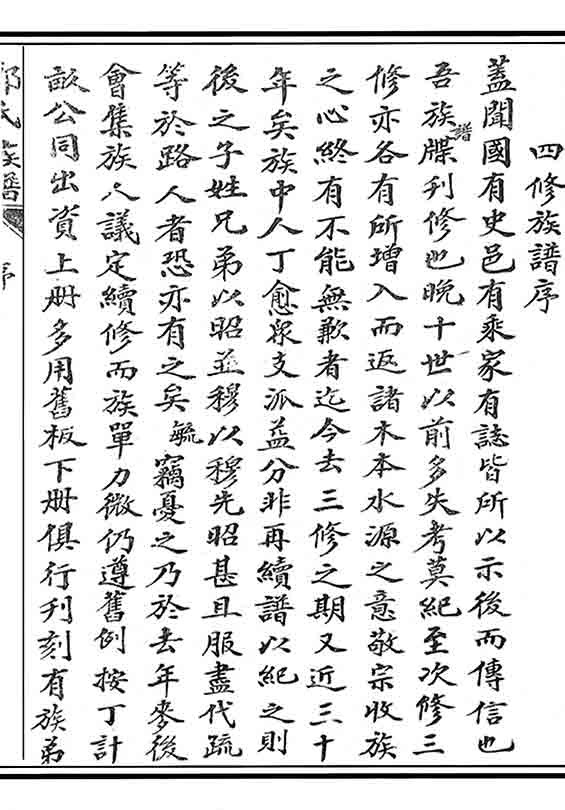 四修族譜序
蓋聞國有史邑有乘家有誌皆所以示後而傳信也
吾族譜牒刊修也晚十世以前多失考莫紀至次修三
修亦各有所增入而返諸木本水源之意敬宗收族
之心終有不能無歉者迄今去三修之期又近三十
年矣族中人丁愈衆支派益分非再續譜以紀之則
後之子姓兄弟以昭並穆以穆先昭甚且服盡代疏
等於路人者恐亦有之矣毓竊憂之乃於去年麥後
會集族人議定續修而族單力微仍遵舊例按丁計
畝公同出資上册多用舊板下册俱行刊刻有族弟
氏族譜
序